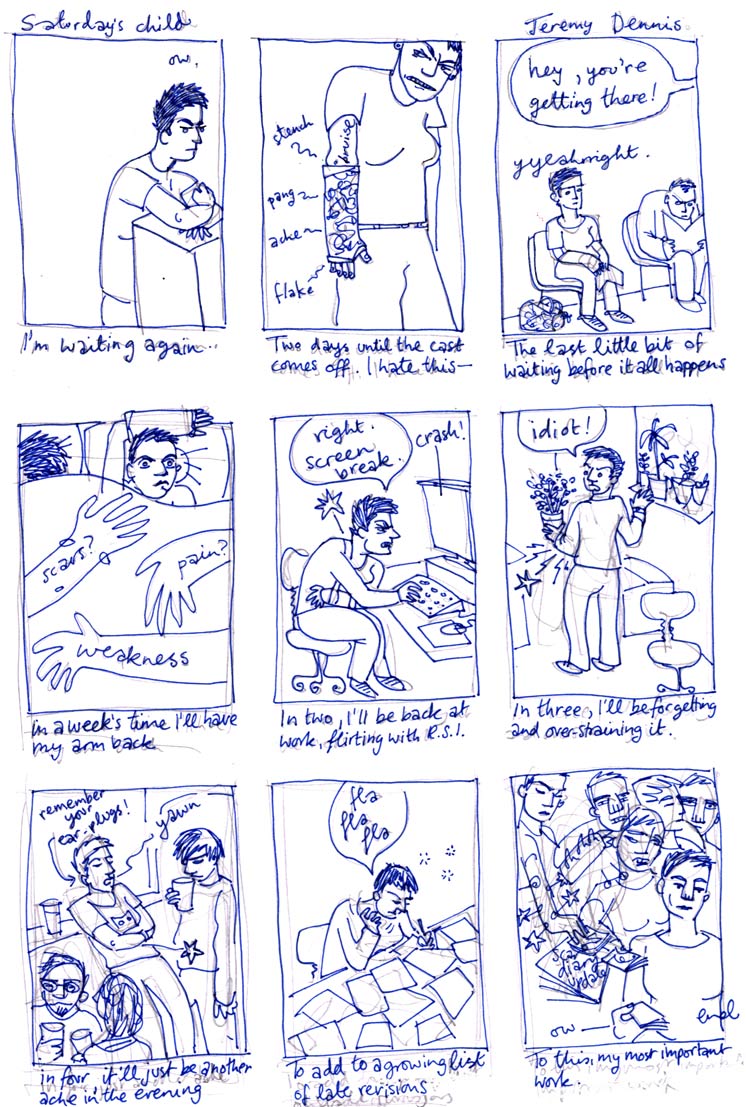 Saturday's child
Jeremy Dennis
ow.
I'm waiting again..
stench
bruise
pang
ache
flake
Two days until the cast
comes off. I hate this—
hey, you're
getting there!
yyeahright.
The last little bit of
waiting before it all happens
scars?
pain?
weakness
In a week's time I'll have
my arm back
right.
screen
break.
crash!
In two, I'll be back at
work, flirting with R.S.I.
idiot!
In three, I'll be forgetting
and over-straining it.
remember
your
ear-plugs!
yawn
in four it'll just be another
ache in the evening
fla
fla
fla
To add to a growing list
of late revisions
scar
diary
update
ow
end
To this, my most important
work.